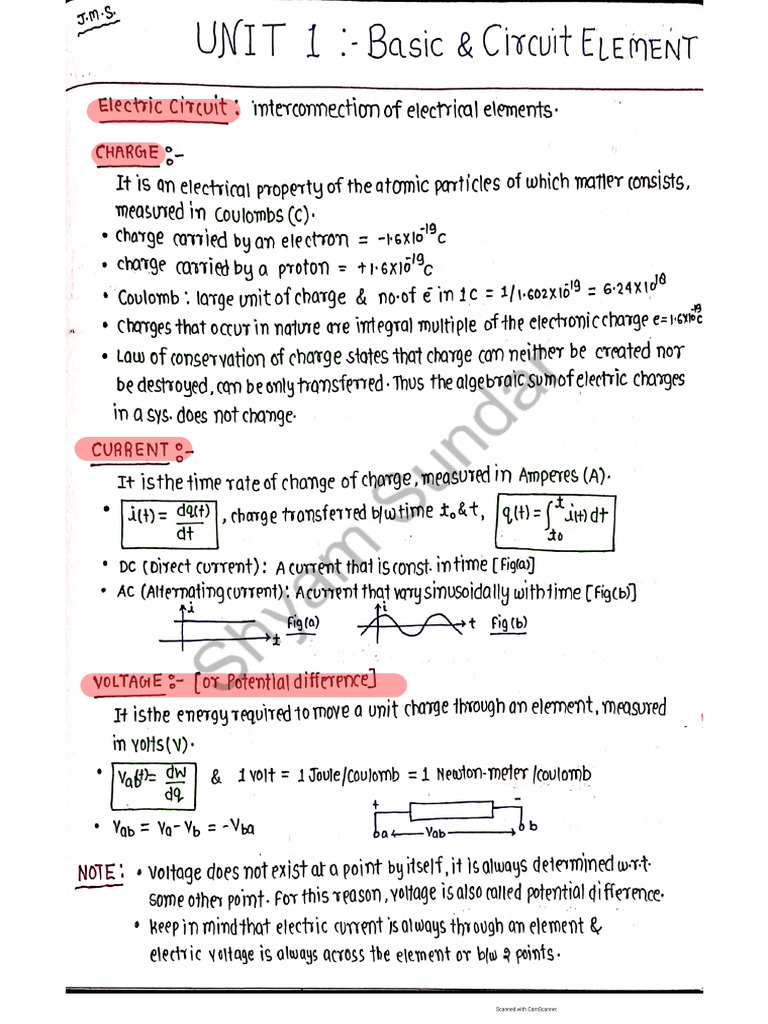 J.M.S.
UNIT 1 :- Basic & Circuit ELEMENT
Electric Circuit: interconnection of electrical elements.
CHARGE :-
It is an electrical property of the atomic particles of which matter consists,
measured in Coulombs (C).
• charge carried by an electron = -1.6x10⁻¹⁹ C
• charge carried by a proton = +1.6x10⁻¹⁹ C
• Coulomb: large unit of charge & no. of e⁻ in 1 C = 1/1.602x10⁻¹⁹ = 6.24x10¹⁸
• Charges that occur in nature are integral multiple of the electronic charge e=1.6x10⁻¹⁹c
• Law of conservation of charge states that charge can neither be created nor
be destroyed, can be only transferred. Thus the algebraic sum of electric charges
in a sys. does not change.
CURRENT :-
It is the time rate of change of charge, measured in Amperes (A).
• i(t) = dq(t)/dt , charge transferred b/w time t₀ & t, q(t) = ∫t₀^t i(t) dt
• DC (Direct current): A current that is const. in time [Fig(a)]
• AC (Alternating current): A current that vary sinusoidally with time [Fig(b)]
i t Fig(a) i t Fig(b)
VOLTAGE :- [or Potential difference]
It is the energy required to move a unit charge through an element, measured
in volts (V).
• Vab(t) = dw/dq & 1 volt = 1 Joule/coulomb = 1 Newton-meter/coulomb
• Vab = Va - Vb = -Vba
+ -
a Vab b
NOTE: • Voltage does not exist at a point by itself, it is always determined w.r.t.
some other point. For this reason, voltage is also called potential difference.
• Keep in mind that electric current is always through an element &
electric voltage is always across the element or b/w 2 points.
Shyam Sundar
Scanned with CamScanner